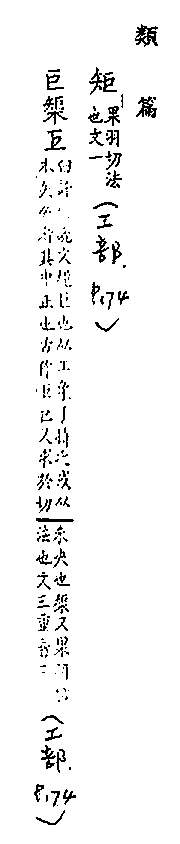 類篇
矩 果羽切法也文一 (工部. P.174)
巨榘𢀑 臼許切說文規巨也从工象手持之或从木矢矢者其中正也古作𢀑巨又求於切 未央也榘又果羽切法也文三重音二 (工部. P.174)